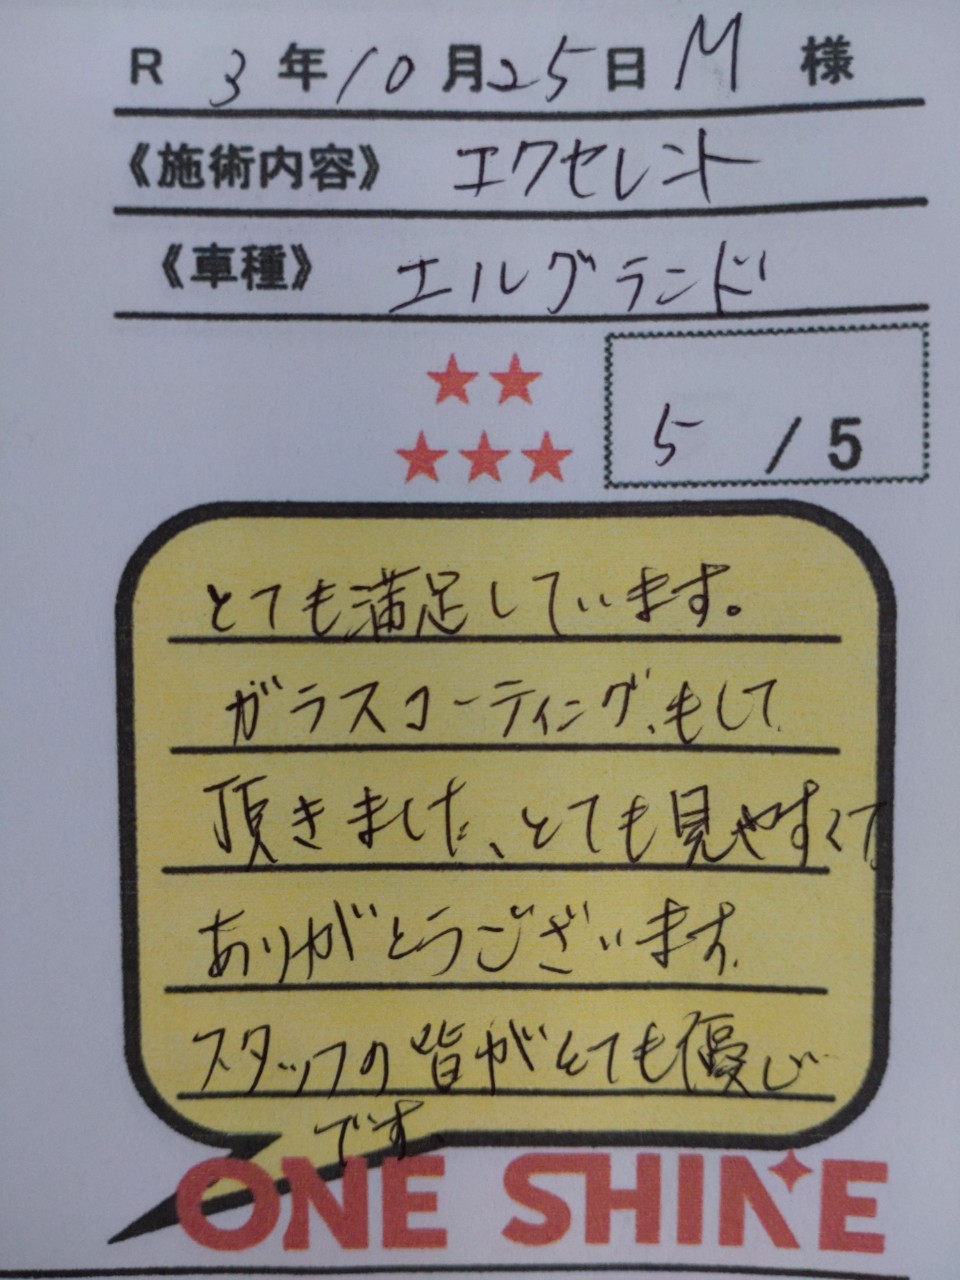 R 3年10月25日 M 様
《施術内容》 エクセレント
《車種》 エルグランド
5 / 5
とても満足しています。
ガラスコーティング、もして
頂きました、とても見やすくて
ありがとうございます。
スタッフの皆がとても優し
です、
ONE SHINE